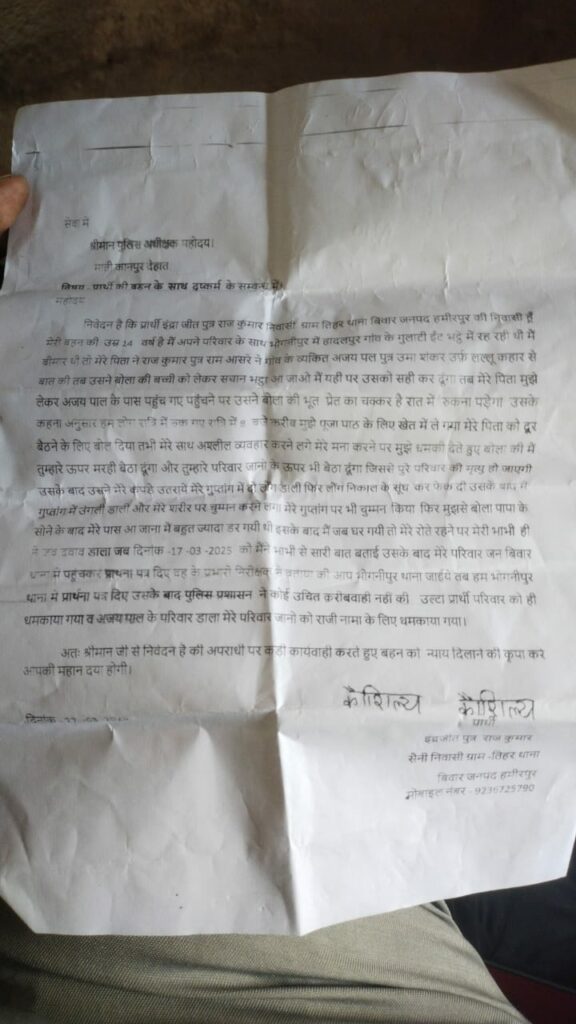 सेवा में
श्रीमान पुलिस अधीक्षक महोदय।
माती कानपुर देहात
विषय -प्रार्थी की बहन के साथ दुष्कर्म के सम्बन्ध में।
महोदय
निवेदन है कि प्रार्थी इंद्रा जीत पुत्र राज कुमार निवासी ग्राम तिहर थाना बिवार जनपद हमीरपुर की निवासी हूँ
मेरी बहन की उम्र 14 वर्ष है में अपने परिवार के साथ भोगनीपुर में हादलपुर गांव के गुलाटी ईंट भट्ठे में रह रही थी में
बीमार थी तो मेरे पिता ने राज कुमार पुत्र राम आसरे ने गांव के व्यकित अजय पल पुत्र उमा शंकर उर्फ लल्लू कहार से
बात की तब उसने बोला की बच्ची को लेकर सचान भट्ठा आ जाओ में यही पर उसको सही कर दूंगा तब मेरे पिता मुझे
लेकर अजय पाल के पास पहुंच गए पहुँचने पर उसने बोला की भूत प्रेत का चक्कर है रात में रुकना पड़ेगा उसके
कहना अनुसार हम लोग रात्रि में रुक गए रात्रि में 9 बजे करीब मुझे पूजा पाठ के लिए खेत में ले गया मेरे पिता को दूर
बैठने के लिए बोल दिया तभी मेरे साथ अश्लील व्यवहार करने लगे मेरे मना करने पर मुझे धमकी देते हुए बोला की में
तुम्हारे ऊपर मरही बेठा दूंगा और तुम्हारे परिवार जानो के ऊपर भी बेठा दूंगा जिससे पुरे परिवार की मृत्यु हो जाएगी
उसके बाद उसने मेरे कपड़े उतराये मेरे गुप्तांग में दो लोंग डाली फिर लोंग निकाल के सूंघ कर फेक दी उसके बाद में
गुप्तांग में उंगली डाली और मेरे शरीर पर चुम्मन करने लगा मेरे गुप्तांग पर भी चुम्मन किया फिर मुझसे बोला पापा के
सोने के बाद मेरे पास आ जाना में बहुत ज्यादा डर गयी थी इसके बाद में जब घर गयी तो मेरे रोते रहने पर मेरी भाभी ही
ने जब दवाव डाला जब दिनांक -17 -03 -2025 को मैंने भाभी से सारी बात बताई उसके बाद मेरे परिवार जन बिवार
थाना में पहुंचकर प्राथना पत्र दिए वह के प्रभारी निरीक्षक ने बताया की आप भोगनीपुर थाना जाईये तब हम भोगनीपुर
थाना में प्रार्थना पत्र दिए उसके बाद पुलिस प्रशासन ने कोई उचित क़रीबवाही नहीं की उल्टा प्रार्थी परिवार को ही
धमकाया गया व अजय पाल के परिवार डाला मेरे परिवार जानो को राजी नामा के लिए धमकाया गया।
अतः श्रीमान जी से निवेदन है की अपराधी पर कड़ी कार्यवाही करते हुए बहन को न्याय दिलाने की कृपा करे
आपकी महान दया होगी।
कौशिल्य कौशिल्य
प्रार्थी
दिनांक
इंद्रजीत पुत्र राज कुमार
सैनी निवासी ग्राम -तिहर थाना
बिवार जनपद हमीरपुर
मोबाइल नंबर - 9236725790